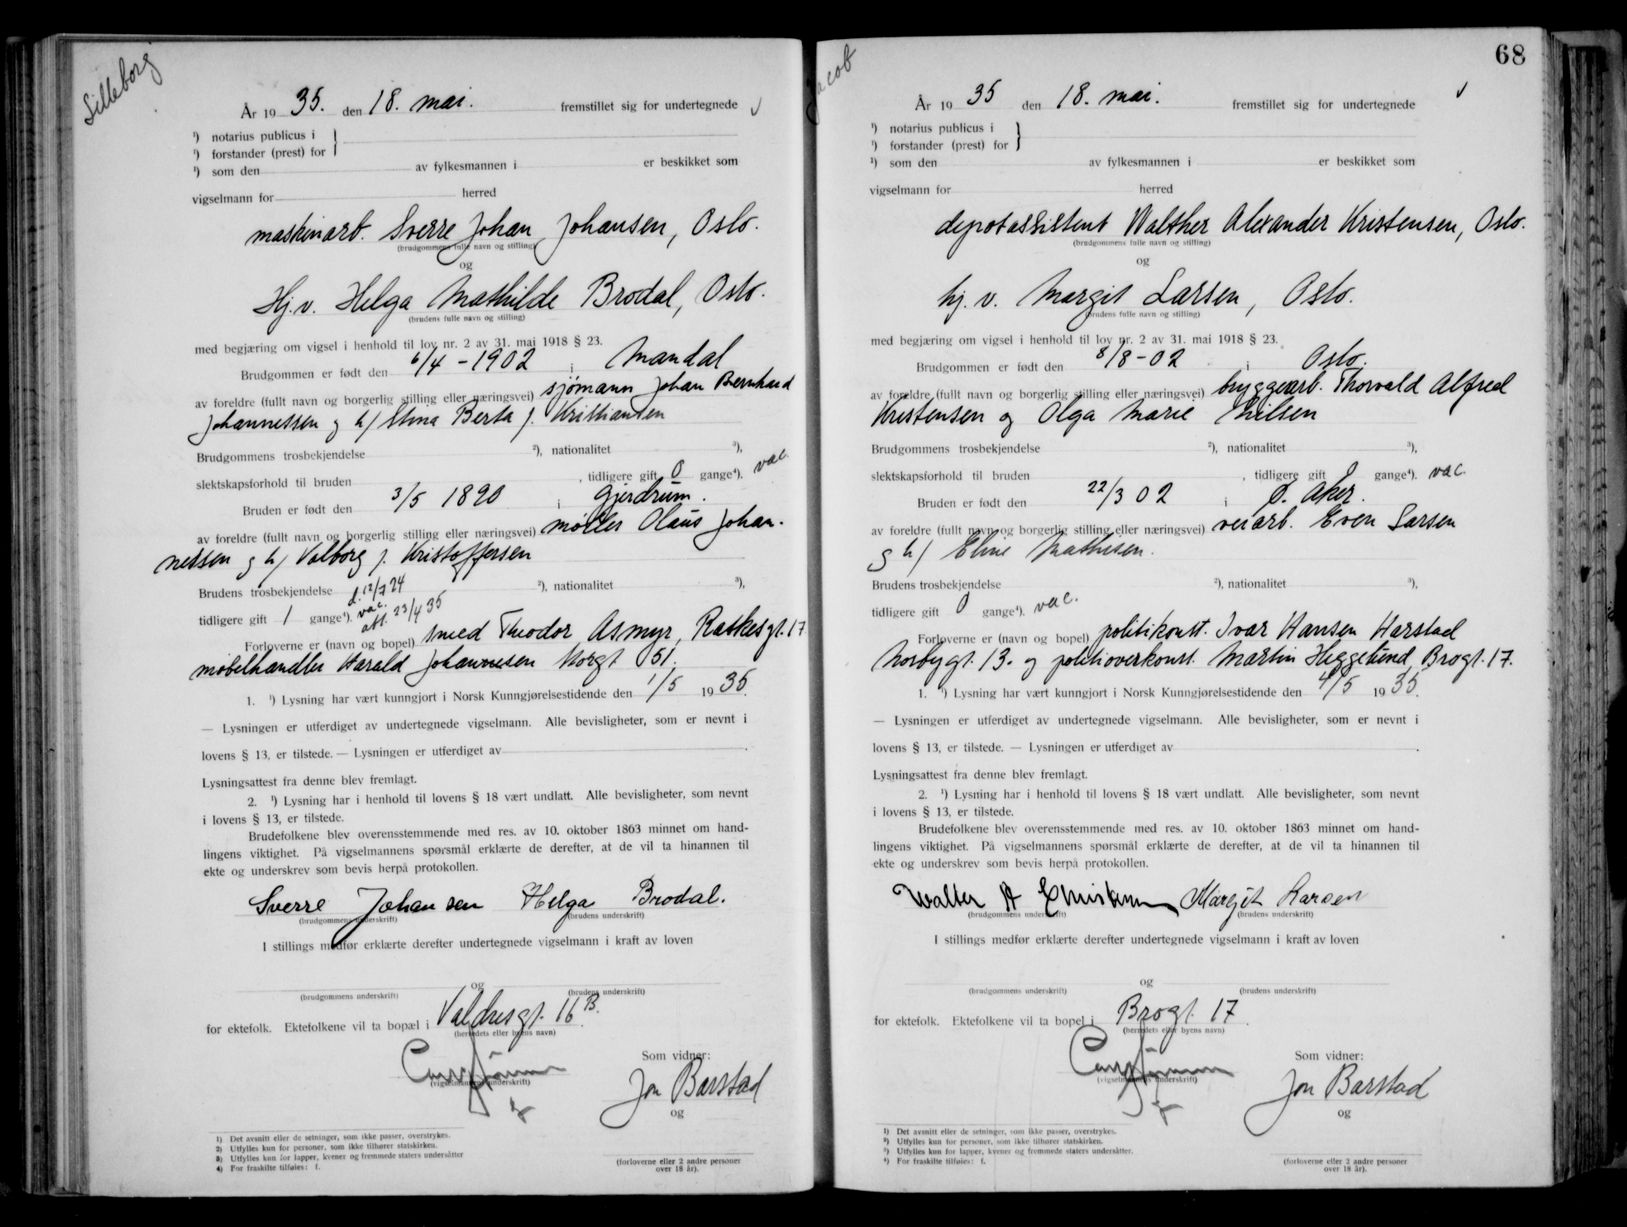 Lilleborg
År 19 35. den 18. mai. fremstillet sig for undertegnede
¹) notarius publicus i
¹) forstander (prest) for
¹) som den av fylkesmannen i er beskikket som
vigselmann for herred
maskinarb. Sverre Johan Johansen, Oslo.
(brudgommens fulle navn og stilling)
og
Hj.v. Helga Mathilde Brodal, Oslo.
(brudens fulle navn og stilling)
med begjæring om vigsel i henhold til lov nr. 2 av 31. mai 1918 § 23.
Brudgommen er født den 6/4 - 1902 i Mandal
av foreldre (fullt navn og borgerlig stilling eller næringsvei) sjømann Johan Bernhard
Johannessen g h/ Stina Berta f. Kristiansen
Brudgommens trosbekjendelse ²), nationalitet ³),
slektskapsforhold til bruden , tidligere gift 0 gange⁴). vac.
Bruden er født den 3/5 1890 i Gjerdrum.
av foreldre (fullt navn og borgerlig stilling eller næringsvei) møller Olaus Johan-
nessen g h/ Valborg f. Kristoffersen
Brudens trosbekjendelse d. 12/7 24 ²), nationalitet ³),
tidligere gift 1 gange⁴). vac. att. 23/4 35
Forloverne er (navn og bopel) smed Theodor Asmyr, Ratkesgt. 17
møbelhandler Harald Johannesen Norgt 51.
1. ¹) Lysning har vært kunngjort i Norsk Kunngjørelsestidende den 1/5 19 35.
— Lysningen er utferdiget av undertegnede vigselmann. Alle bevisligheter, som er nevnt i
lovens § 13, er tilstede. — Lysningen er utferdiget av
Lysningsattest fra denne blev fremlagt.
2. ¹) Lysning har i henhold til lovens § 18 vært undlatt. Alle bevisligheter, som nevnt
i lovens § 13, er tilstede.
Brudefolkene blev overensstemmende med res. av 10. oktober 1863 minnet om hand-
lingens viktighet. På vigselmannens spørsmål erklærte de derefter, at de vil ta hinannen til
ekte og underskrev som bevis herpå protokollen.
Sverre Johansen Helga Brodal.
(brudgommens underskrift) (brudens underskrift)
I stillings medfør erklærte derefter undertegnede vigselmann i kraft av loven
og
(brudgommens underskrift) (brudens underskrift)
for ektefolk. Ektefolkene vil ta bopæl i Valdresgt. 16 B.
(herredets eller byens navn)
(vigselmannens underskrift)
Som vidner:
Jon Barstad
og
1) Det avsnitt eller de setninger, som ikke passer, overstrykes.
2) Utfylles kun for personer, som ikke tilhører statskirken.
3) Utfylles kun for lapper, kvener og fremmede staters undersåtter
4) For fraskilte tilføies: f.
(forloverne eller 2 andre personer
over 18 år).
68
Jacob
År 19 35 den 18. mai. fremstillet sig for undertegnede
¹) notarius publicus i
¹) forstander (prest) for
¹) som den av fylkesmannen i er beskikket som
vigselmann for herred
depotassistent Walther Alexander Kristensen, Oslo.
(brudgommens fulle navn og stilling)
og
hj. v. Margit Larsen, Oslo.
(brudens fulle navn og stilling)
med begjæring om vigsel i henhold til lov nr. 2 av 31. mai 1918 § 23.
Brudgommen er født den 8/8 - 02 i Oslo.
av foreldre (fullt navn og borgerlig stilling eller næringsvei) bryggearb. Thorvald Alfred
Kristensen og Olga Marie Nilsen
Brudgommens trosbekjendelse ²), nationalitet ³),
slektskapsforhold til bruden , tidligere gift 0 gange⁴). vac.
Bruden er født den 22/3 02 i Ø. Aker.
av foreldre (fullt navn og borgerlig stilling eller næringsvei) veiarb. Even Larsen
g h/ Eline Mathisen.
Brudens trosbekjendelse ²), nationalitet ³),
tidligere gift 0 gange⁴). vac.
Forloverne er (navn og bopel) politikonst. Ivar Hansen Harstad
Norbygt. 13. og politioverkonst. Martin Heggelund, Brogt. 17.
1. ¹) Lysning har vært kunngjort i Norsk Kunngjørelsestidende den 4/5 19 35.
— Lysningen er utferdiget av undertegnede vigselmann. Alle bevisligheter, som er nevnt i
lovens § 13, er tilstede. — Lysningen er utferdiget av
Lysningsattest fra denne blev fremlagt.
2. ¹) Lysning har i henhold til lovens § 18 vært undlatt. Alle bevisligheter, som nevnt
i lovens § 13, er tilstede.
Brudefolkene blev overensstemmende med res. av 10. oktober 1863 minnet om hand-
lingens viktighet. På vigselmannens spørsmål erklærte de derefter, at de vil ta hinannen til
ekte og underskrev som bevis herpå protokollen.
Walter A Christensen Margit Larsen
(brudgommens underskrift) (brudens underskrift)
I stillings medfør erklærte derefter undertegnede vigselmann i kraft av loven
og
(brudgommens underskrift) (brudens underskrift)
for ektefolk. Ektefolkene vil ta bopel i Brogt. 17.
(herredets eller byens navn)
(vigselmannens underskrift)
Som vidner:
Jon Barstad
og
1) Det avsnitt eller de setninger, som ikke passer, overstrykes.
²) Utfylles kun for personer, som ikke tilhører statskirken.
³) Utfylles kun for lapper, kvener og fremmede staters undersåtter.
⁴) For fraskilte tilføies: f.
(forloverne eller 2 andre personer
over 18 år).